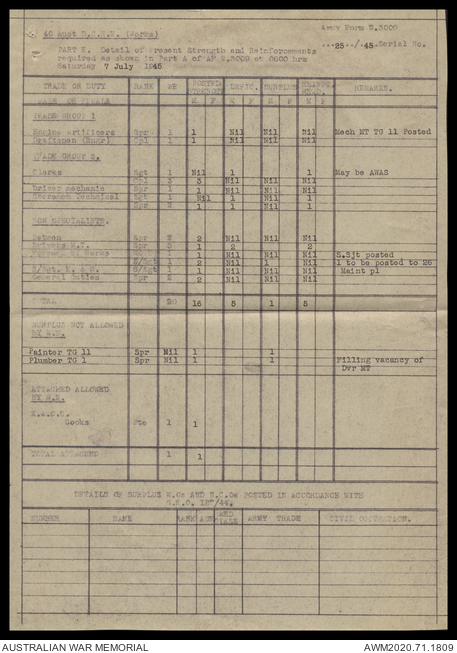 40 Aust D.C.R.E. (Works)
Army Form W.3009
...25../.45.Serial No.
PART E. Detail of Present Strength and Reinforcements
required as shown in Part A of AF W.3009 at 0600 hrs
Saturday 7 July 1945
TRADE OR DUTY RANK WE POSTED STRENGTH DEFIC. SURPLUS REINFTS REMARKS.
M F M F M F M F
TRADE GROUP 1
Engine artificers Spr 1 1 Nil Nil Nil Mech MT TG 11 Posted
Draftsmen (Engr) Cpl 1 1 Nil Nil Nil
TRADE GROUP 2.
Clerks Sgt 1 Nil 1 1 May be AWAS
Cpl 3 3 Nil Nil Nil
Driver mechanic Spr 1 1 Nil Nil Nil
Storeman Technical Sgt 1 Nil 1 1
Spr 2 1 1 1
NON SPECIALISTS.
Batmen Spr 2 2 Nil Nil Nil
Drivers M.T. Spr 3 1 2 2
Foreman of Works 1 1 Nil Nil Nil S.Sjt posted
S/Sgt 1 2 Nil 1 Nil 1 to be posted to 26
1 1 Nil Nil Nil Maint pl
General Duties Spr 2 2 Nil Nil Nil
TOTAL 20 16 5 1 5
SURPLUS NOT ALLOWED
BY W.E.
Painter TG 11 Spr Nil 1 1
Plumber TG 1 Spr Nil 1 1 Filling vacancy of
Dvr MT
ATTACHED ALLOWED
BY W.E.
Cooks Pte 1 1
TOTAL ATTACHED 1 1
DETAILS OF SURPLUS W.Os AND N.C.Os POSTED IN ACCORDANCE WITH
NUMBER NAME RANK AGE MED CLASS ARMY TRADE CIVIL OCCUPATION.
AUSTRALIAN WAR MEMORIAL
AWM2020.71.1809